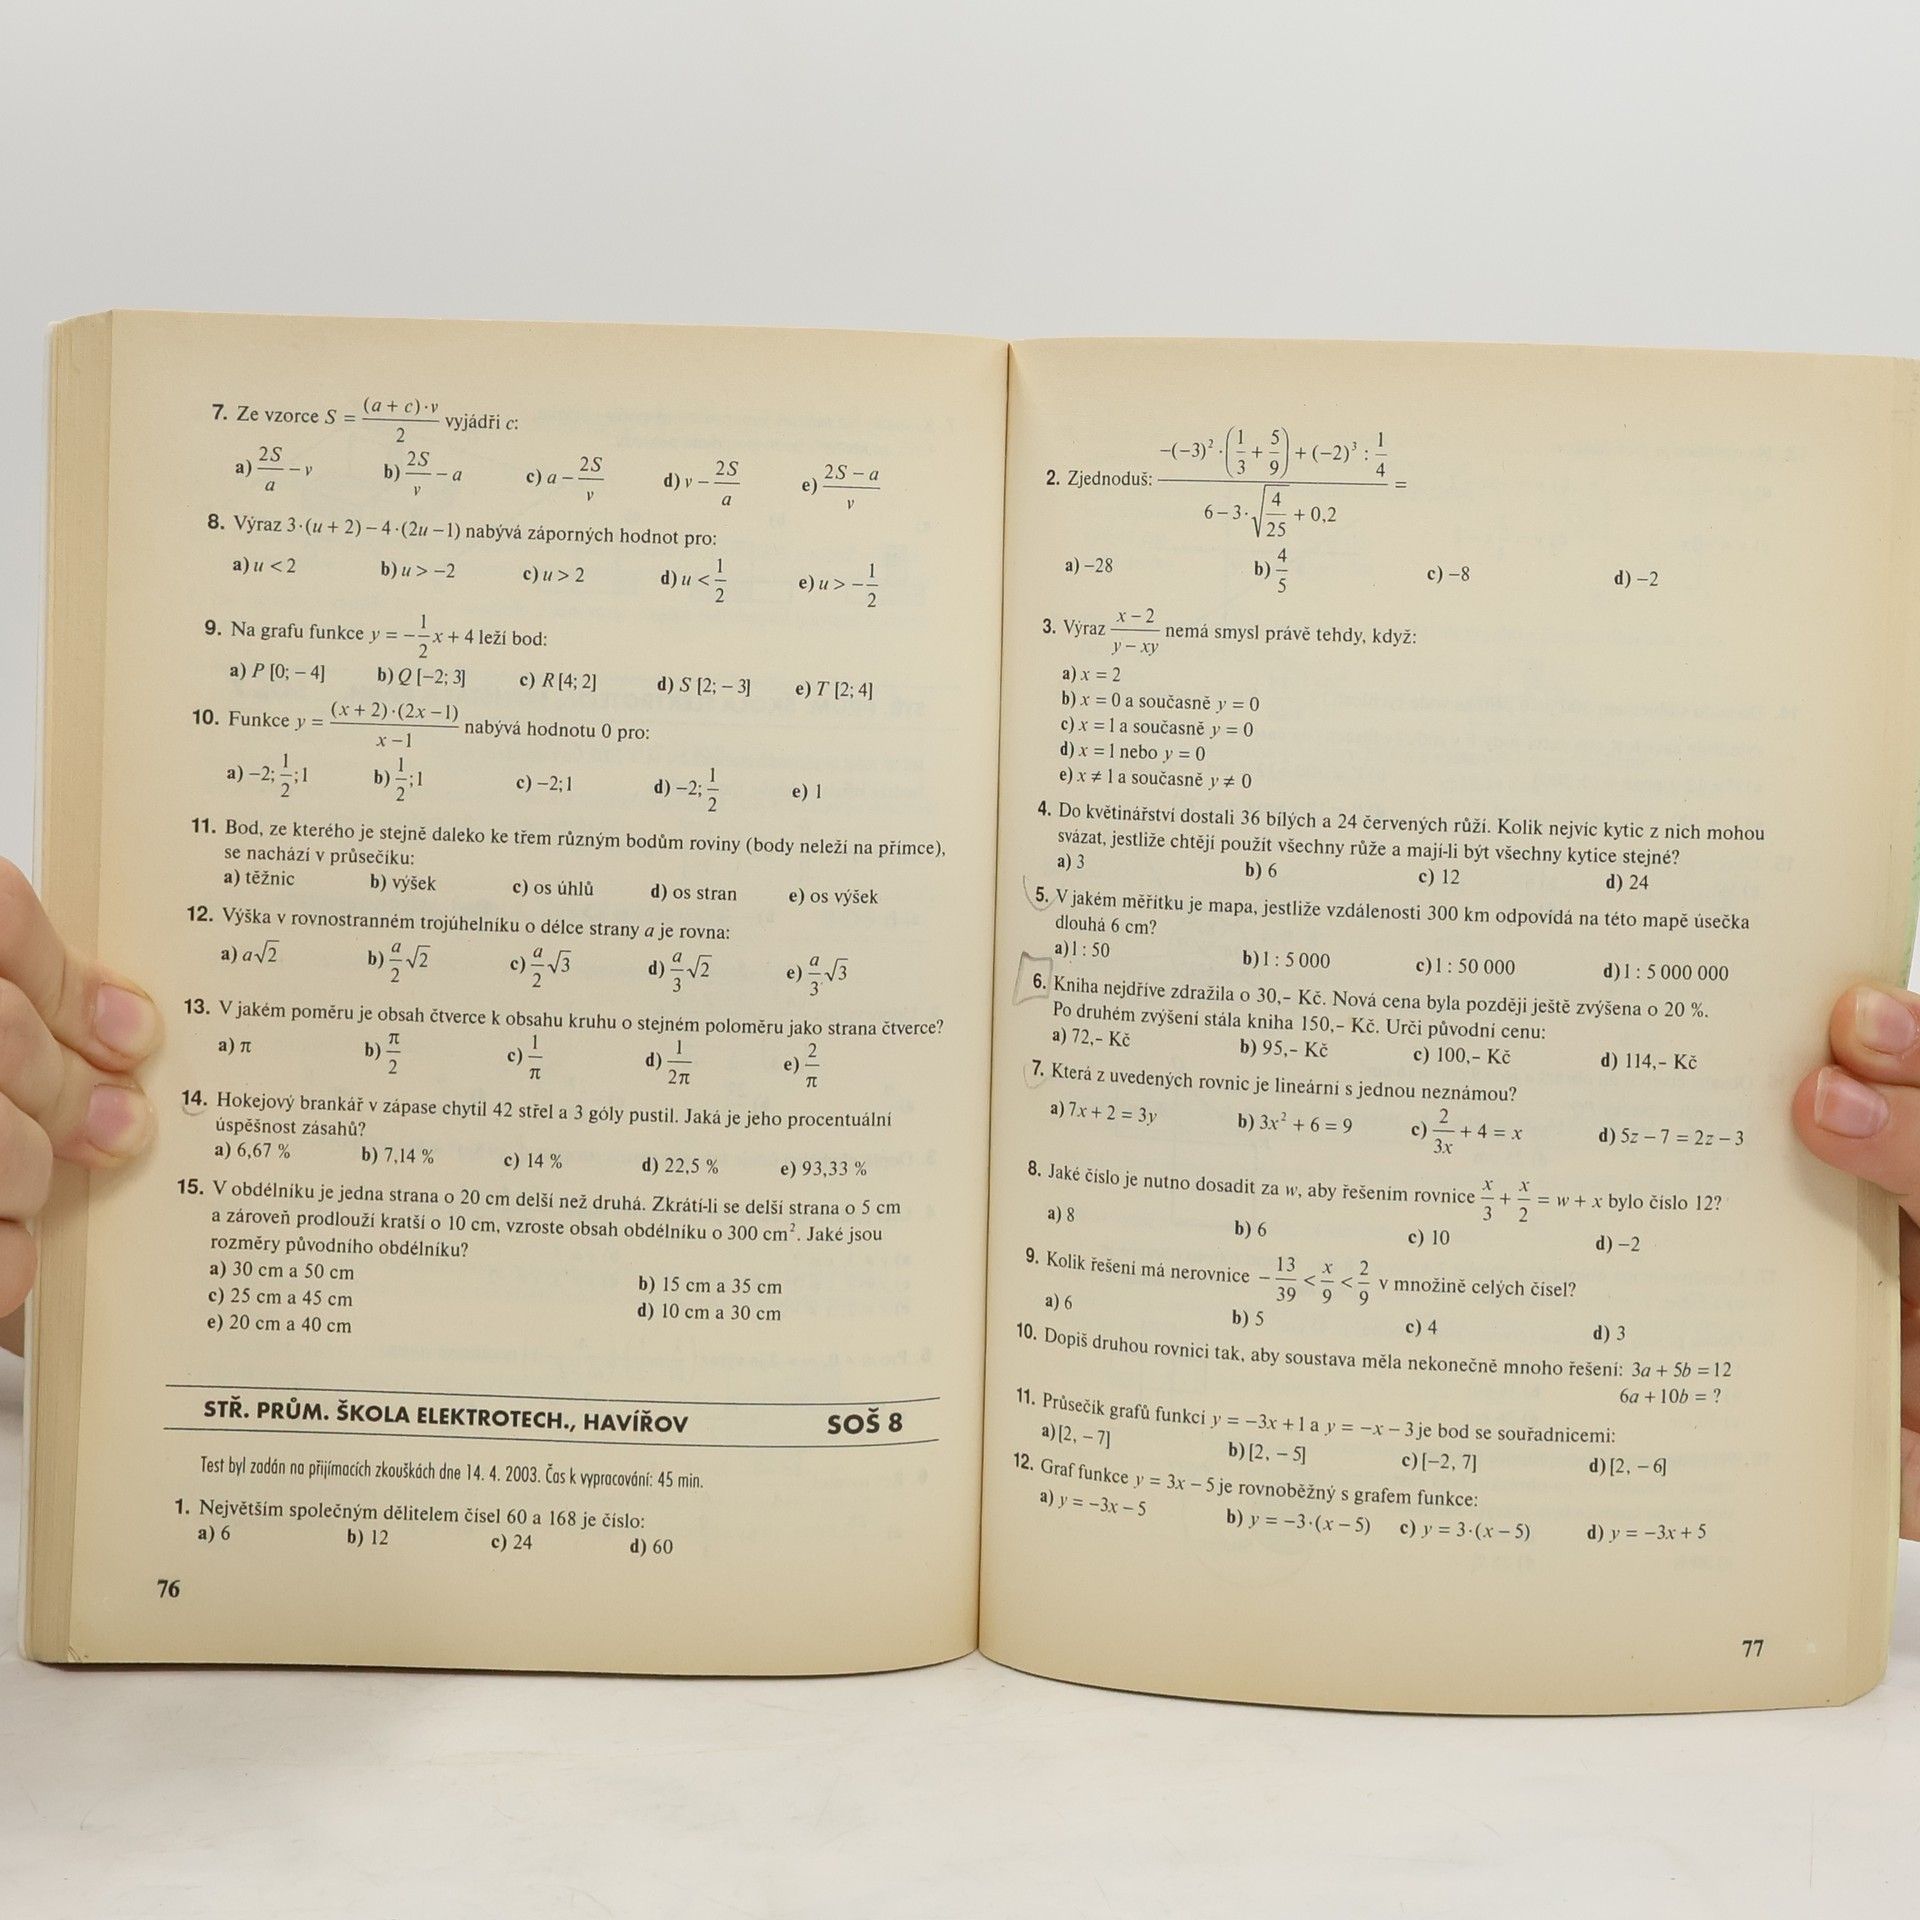 7. Ze vzorce S = (a + c)·v / 2 vyjádři c:
a) 2S/a − v b) 2S/v − a c) a − 2S/v d) v − 2S/a e) (2S − a)/v
8. Výraz 3·(u + 2) − 4·(2u − 1) nabývá záporných hodnot pro:
a) u < 2 b) u > −2 c) u > 2 d) u < 1/2 e) u > −1/2
9. Na grafu funkce y = −1/2 x + 4 leží bod:
a) P [0; − 4] b) Q [−2; 3] c) R [4; 2] d) S [2; − 3] e) T [2; 4]
10. Funkce y = (x + 2)·(2x − 1) / (x − 1) nabývá hodnotu 0 pro:
a) −2; 1/2; 1 b) 1/2; 1 c) −2; 1 d) −2; 1/2 e) 1
11. Bod, ze kterého je stejně daleko ke třem různým bodům roviny (body neleží na přímce),
se nachází v průsečíku:
a) těžnic b) výšek c) os úhlů d) os stran e) os výšek
12. Výška v rovnostranném trojúhelníku o délce strany a je rovna:
a) a√2 b) a/2 √2 c) a/2 √3 d) a/3 √2 e) a/3 √3
13. V jakém poměru je obsah čtverce k obsahu kruhu o stejném poloměru jako strana čtverce?
a) π b) π/2 c) 1/π d) 1/2π e) 2/π
14. Hokejový brankář v zápase chytil 42 střel a 3 góly pustil. Jaká je jeho procentuální
úspěšnost zásahů?
a) 6,67 % b) 7,14 % c) 14 % d) 22,5 % e) 93,33 %
15. V obdélníku je jedna strana o 20 cm delší než druhá. Zkrátí-li se delší strana o 5 cm
a zároveň prodlouží kratší o 10 cm, vzroste obsah obdélníku o 300 cm². Jaké jsou
rozměry původního obdélníku?
a) 30 cm a 50 cm b) 15 cm a 35 cm
c) 25 cm a 45 cm d) 10 cm a 30 cm
e) 20 cm a 40 cm
STŘ. PRŮM. ŠKOLA ELEKTROTECH., HAVÍŘOV SOŠ 8
Test byl zadán na přijímacích zkouškách dne 14. 4. 2003. Čas k vypracování: 45 min.
1. Největším společným dělitelem čísel 60 a 168 je číslo:
a) 6 b) 12 c) 24 d) 60
76
2. Zjednoduš: (−(−3)²·(1/3 + 5/9) + (−2)³ : 1/4) / (6 − 3·√(4/25) + 0,2) =
a) −28 b) 4/5 c) −8 d) −2
3. Výraz (x − 2)/(y − xy) nemá smysl právě tehdy, když:
a) x = 2
b) x = 0 a současně y = 0
c) x = 1 a současně y = 0
d) x = 1 nebo y = 0
e) x ≠ 1 a současně y ≠ 0
4. Do květinářství dostali 36 bílých a 24 červených růží. Kolik nejvíc kytic z nich mohou
svázat, jestliže chtějí použít všechny růže a mají-li být všechny kytice stejné?
a) 3 b) 6 c) 12 d) 24
5. V jakém měřítku je mapa, jestliže vzdálenosti 300 km odpovídá na této mapě úsečka
dlouhá 6 cm?
a) 1 : 50 b) 1 : 5 000 c) 1 : 50 000 d) 1 : 5 000 000
6. Kniha nejdříve zdražila o 30,– Kč. Nová cena byla později ještě zvýšena o 20 %.
Po druhém zvýšení stála kniha 150,– Kč. Urči původní cenu:
a) 72,– Kč b) 95,– Kč c) 100,– Kč d) 114,– Kč
7. Která z uvedených rovnic je lineární s jednou neznámou?
a) 7x + 2 = 3y b) 3x² + 6 = 9 c) 2/3x + 4 = x d) 5z − 7 = 2z − 3
8. Jaké číslo je nutno dosadit za w, aby řešením rovnice x/3 + x/2 = w + x bylo číslo 12?
a) 8 b) 6 c) 10 d) −2
9. Kolik řešení má nerovnice −13/39 < x/9 < 2/9 v množině celých čísel?
a) 6 b) 5 c) 4 d) 3
10. Dopiš druhou rovnici tak, aby soustava měla nekonečně mnoho řešení: 3a + 5b = 12
6a + 10b = ?
11. Průsečík grafů funkcí y = −3x + 1 a y = −x − 3 je bod se souřadnicemi:
a) [2, − 7] b) [2, − 5] c) [−2, 7] d) [2, − 6]
12. Graf funkce y = 3x − 5 je rovnoběžný s grafem funkce:
a) y = −3x − 5 b) y = −3·(x − 5) c) y = 3·(x − 5) d) y = −3x + 5
77